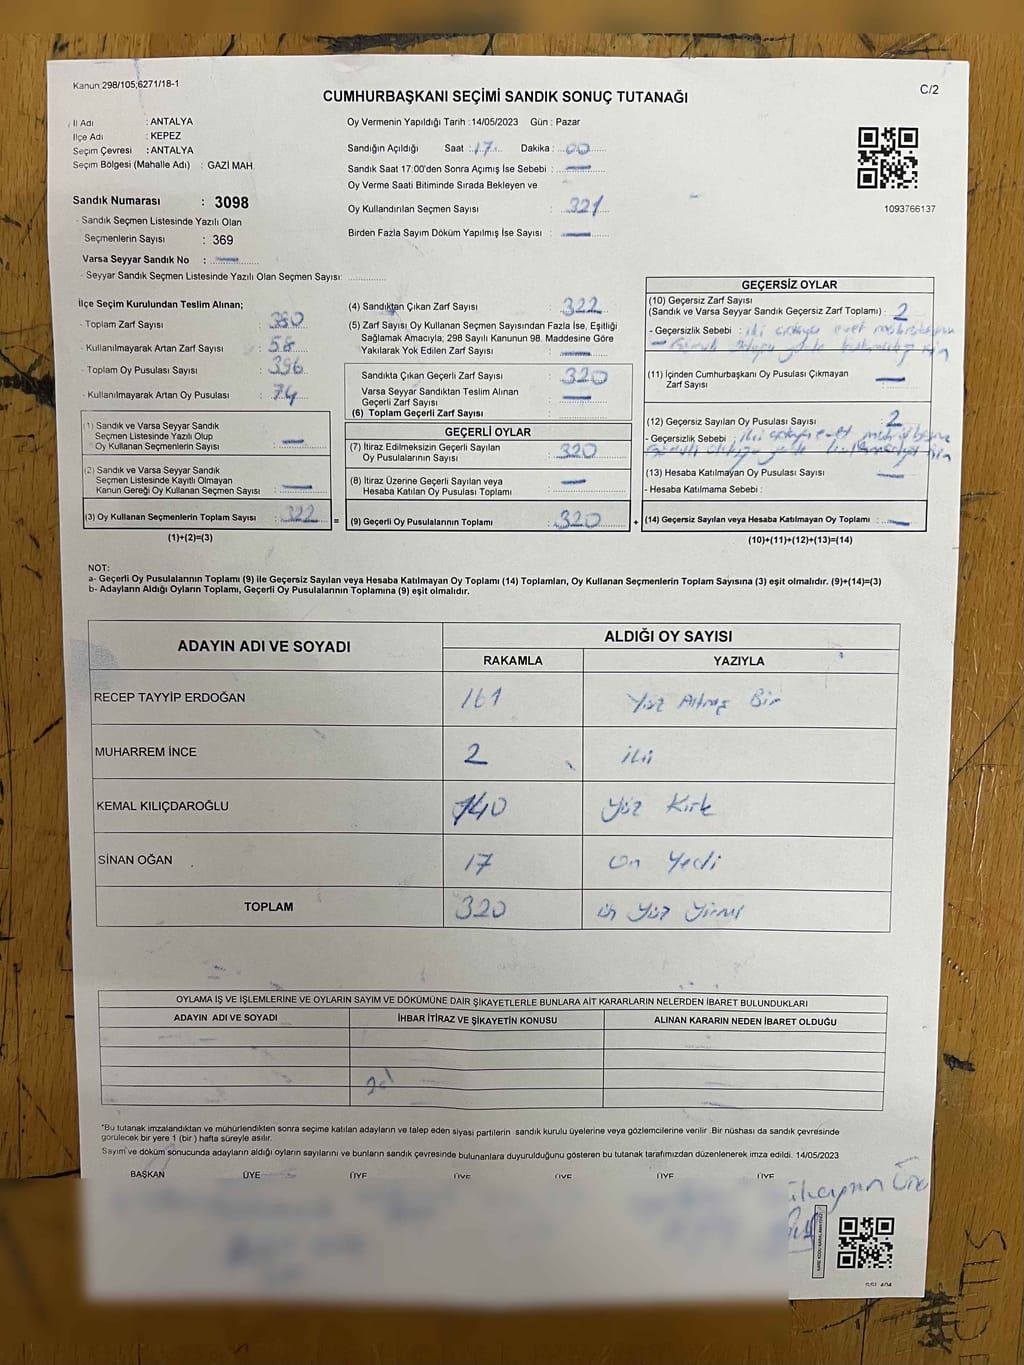 Kanun 298/105;6271/18-1
C/2
CUMHURBAŞKANI SEÇİMİ SANDIK SONUÇ TUTANAĞI
İl Adı : ANTALYA
İlçe Adı : KEPEZ
Seçim Çevresi : ANTALYA
Seçim Bölgesi (Mahalle Adı) : GAZİ MAH.
Sandık Numarası : 3098
- Sandık Seçmen Listesinde Yazılı Olan
Seçmenlerin Sayısı : 369
Varsa Seyyar Sandık No : —
- Seyyar Sandık Seçmen Listesinde Yazılı Olan Seçmen Sayısı: ............
Oy Vermenin Yapıldığı Tarih :14/05/2023 Gün : Pazar
Sandığın Açıldığı Saat : 17 Dakika : 00
Sandık Saat 17:00'den Sonra Açımış İse Sebebi : —
Oy Verme Saati Bitiminde Sırada Bekleyen ve
Oy Kullandırılan Seçmen Sayısı : 321
Birden Fazla Sayım Döküm Yapılmış İse Sayısı : —
1093766137
İlçe Seçim Kurulundan Teslim Alınan;
- Toplam Zarf Sayısı : 380
- Kullanılmayarak Artan Zarf Sayısı : 58
- Toplam Oy Pusulası Sayısı : 396
- Kullanılmayarak Artan Oy Pusulası : 74
(1) Sandık ve Varsa Seyyar Sandık
Seçmen Listesinde Yazılı Olup
Oy Kullanan Seçmenlerin Sayısı : —
(2) Sandık ve Varsa Seyyar Sandık
Seçmen Listesinde Kayıtlı Olmayan
Kanun Gereği Oy Kullanan Seçmen Sayısı : —
(3) Oy Kullanan Seçmenlerin Toplam Sayısı : 322 =
(1)+(2)=(3)
(4) Sandıktan Çıkan Zarf Sayısı : 322
(5) Zarf Sayısı Oy Kullanan Seçmen Sayısından Fazla İse, Eşitliği
Sağlamak Amacıyla; 298 Sayılı Kanunun 98. Maddesine Göre
Yakılarak Yok Edilen Zarf Sayısı : —
Sandıkta Çıkan Geçerli Zarf Sayısı : 320
Varsa Seyyar Sandıktan Teslim Alınan
Geçerli Zarf Sayısı : —
(6) Toplam Geçerli Zarf Sayısı :
GEÇERLİ OYLAR
(7) İtiraz Edilmeksizin Geçerli Sayılan
Oy Pusulalarının Sayısı : 320
(8) İtiraz Üzerine Geçerli Sayılan veya
Hesaba Katılan Oy Pusulası Toplamı : —
(9) Geçerli Oy Pusulalarının Toplamı : 320 +
GEÇERSİZ OYLAR
(10) Geçersiz Zarf Sayısı
(Sandık ve Varsa Seyyar Sandık Geçersiz Zarf Toplamı) : 2
- Geçersizlik Sebebi : iki evet
(11) İçinden Cumhurbaşkanı Oy Pusulası Çıkmayan
Zarf Sayısı —
(12) Geçersiz Sayılan Oy Pusulası Sayısı : 2
- Geçersizlik Sebebi : iki evet
(13) Hesaba Katılmayan Oy Pusulası Sayısı : —
- Hesaba Katılmama Sebebi :
(14) Geçersiz Sayılan veya Hesaba Katılmayan Oy Toplamı : —
(10)+(11)+(12)+(13)=(14)
NOT:
a- Geçerli Oy Pusulalarının Toplamı (9) ile Geçersiz Sayılan veya Hesaba Katılmayan Oy Toplamı (14) Toplamları, Oy Kullanan Seçmenlerin Toplam Sayısına (3) eşit olmalıdır. (9)+(14)=(3)
b- Adayların Aldığı Oyların Toplamı, Geçerli Oy Pusulalarının Toplamına (9) eşit olmalıdır.
ADAYIN ADI VE SOYADI ALDIĞI OY SAYISI
RAKAMLA YAZIYLA
RECEP TAYYİP ERDOĞAN 161 Yüz Altmış Bir
MUHARREM İNCE 2 iki
KEMAL KILIÇDAROĞLU 140 Yüz Kırk
SİNAN OĞAN 17 On Yedi
TOPLAM 320 üç Yüz Yirmi
OYLAMA İŞ VE İŞLEMLERİNE VE OYLARIN SAYIM VE DÖKÜMÜNE DAİR ŞİKAYETLERLE BUNLARA AİT KARARLARIN NELERDEN İBARET BULUNDUKLARI
ADAYIN ADI VE SOYADI İHBAR İTİRAZ VE ŞİKAYETİN KONUSU ALINAN KARARIN NEDEN İBARET OLDUĞU
*Bu tutanak imzalandıktan ve mühürlendikten sonra seçime katılan adayların ve talep eden siyasi partilerin sandık kurulu üyelerine veya gözlemcilerine verilir. Bir nüshası da sandık çevresinde
görülecek bir yere 1 (bir ) hafta süreyle asılır.
Sayım ve döküm sonucunda adayların aldığı oyların sayılarını ve bunların sandık çevresinde bulunanlara duyurulduğunu gösteren bu tutanak tarafımızdan düzenlenerek imza edildi. 14/05/2023
BAŞKAN ÜYE ÜYE ÜYE ÜYE ÜYE ÜYE